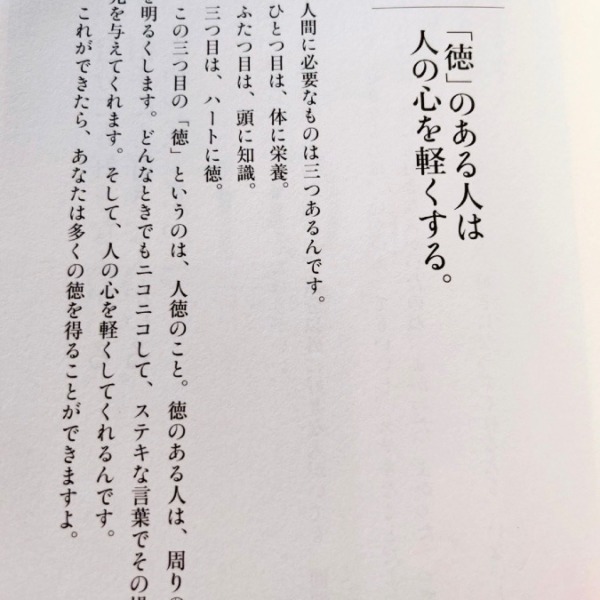 「徳」のある人は
人の心を軽くする。
人間に必要なものは三つあるんです。
ひとつ目は、体に栄養。
ふたつ目は、頭に知識。
三つ目は、ハートに徳。
この三つ目の「徳」というのは、人徳のこと。徳のある人は、周りの
明るくします。どんなときでもニコニコして、ステキな言葉でその場
を与えてくれます。そして、人の心を軽くしてくれるんです。
これができたら、あなたは多くの徳を得ることができますよ。